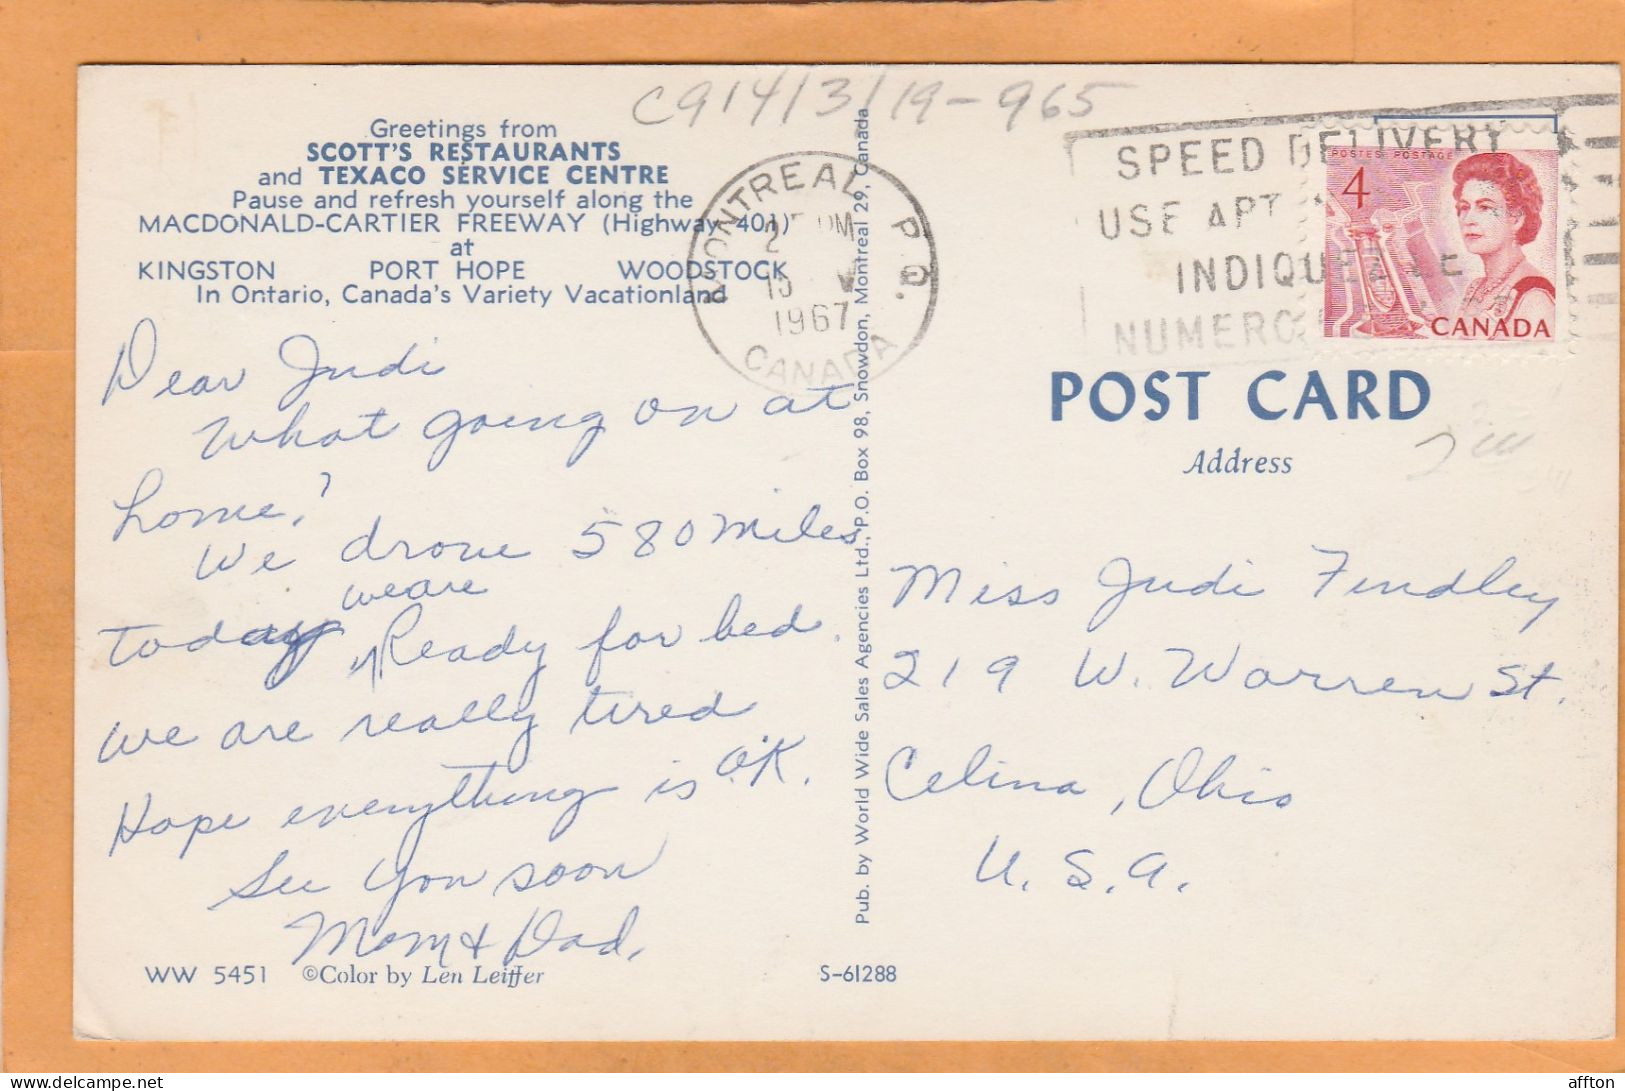 C914/3/19-965
Greetings from
SCOTT'S RESTAURANTS
and TEXACO SERVICE CENTRE
Pause and refresh yourself along the
MACDONALD-CARTIER FREEWAY (Highway 401)
at
KINGSTON PORT HOPE WOODSTOCK
In Ontario, Canada's Variety Vacationland
Dear Judi
What going on at
home?
We drove 580 miles
we are
today Ready for bed.
we are really tired
Hope everything is O.K.
See you soon
Mom & Dad.
WW 5451 ©Color by Len Leiffer
S-61288
Pub. by World Wide Sales Agencies Ltd., P.O. Box 98, Snowdon, Montreal 29, Canada
MONTREAL P.Q.
1967
CANADA
SPEED DELIVERY
USE APT
INDIQUEZ LE
NUMERO
POSTES POSTAGE
4
CANADA
POST CARD
Address
Miss Judi Findley
219 W. Warren St.
Celina, Ohio
U.S.A.
affton